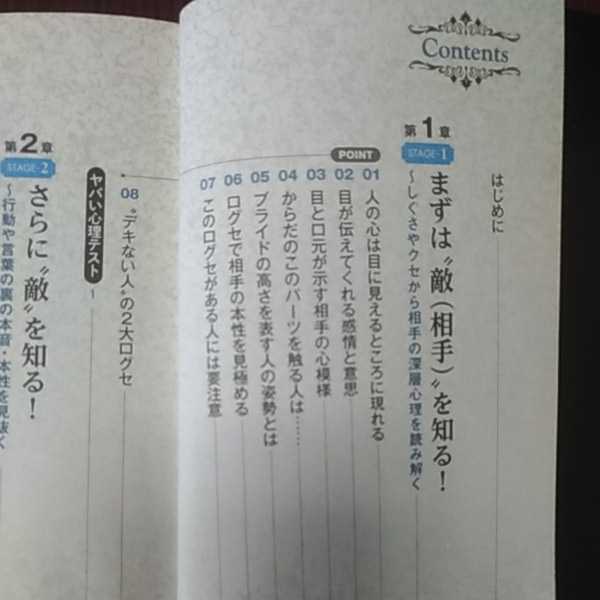 Contents
はじめに
第1章
STAGE-1
まずは〝敵(相手)〟を知る!
~しぐさやクセから相手の深層心理を読み解く
POINT
01 人の心は目に見えるところに現れる
02 目が伝えてくれる感情と意思
03 目と口元が示す相手の心模様
04 からだのこのパーツを触る人は……
05 プライドの高さを表す人の姿勢とは
06 口グセで相手の本性を見極める
07 この口グセがある人には要注意
08 〝デキない人〟の2大口グセ
ヤバい心理テスト
第2章
STAGE-2
さらに〝敵〟を知る!
~行動や言葉の裏の本音・本性を見抜く